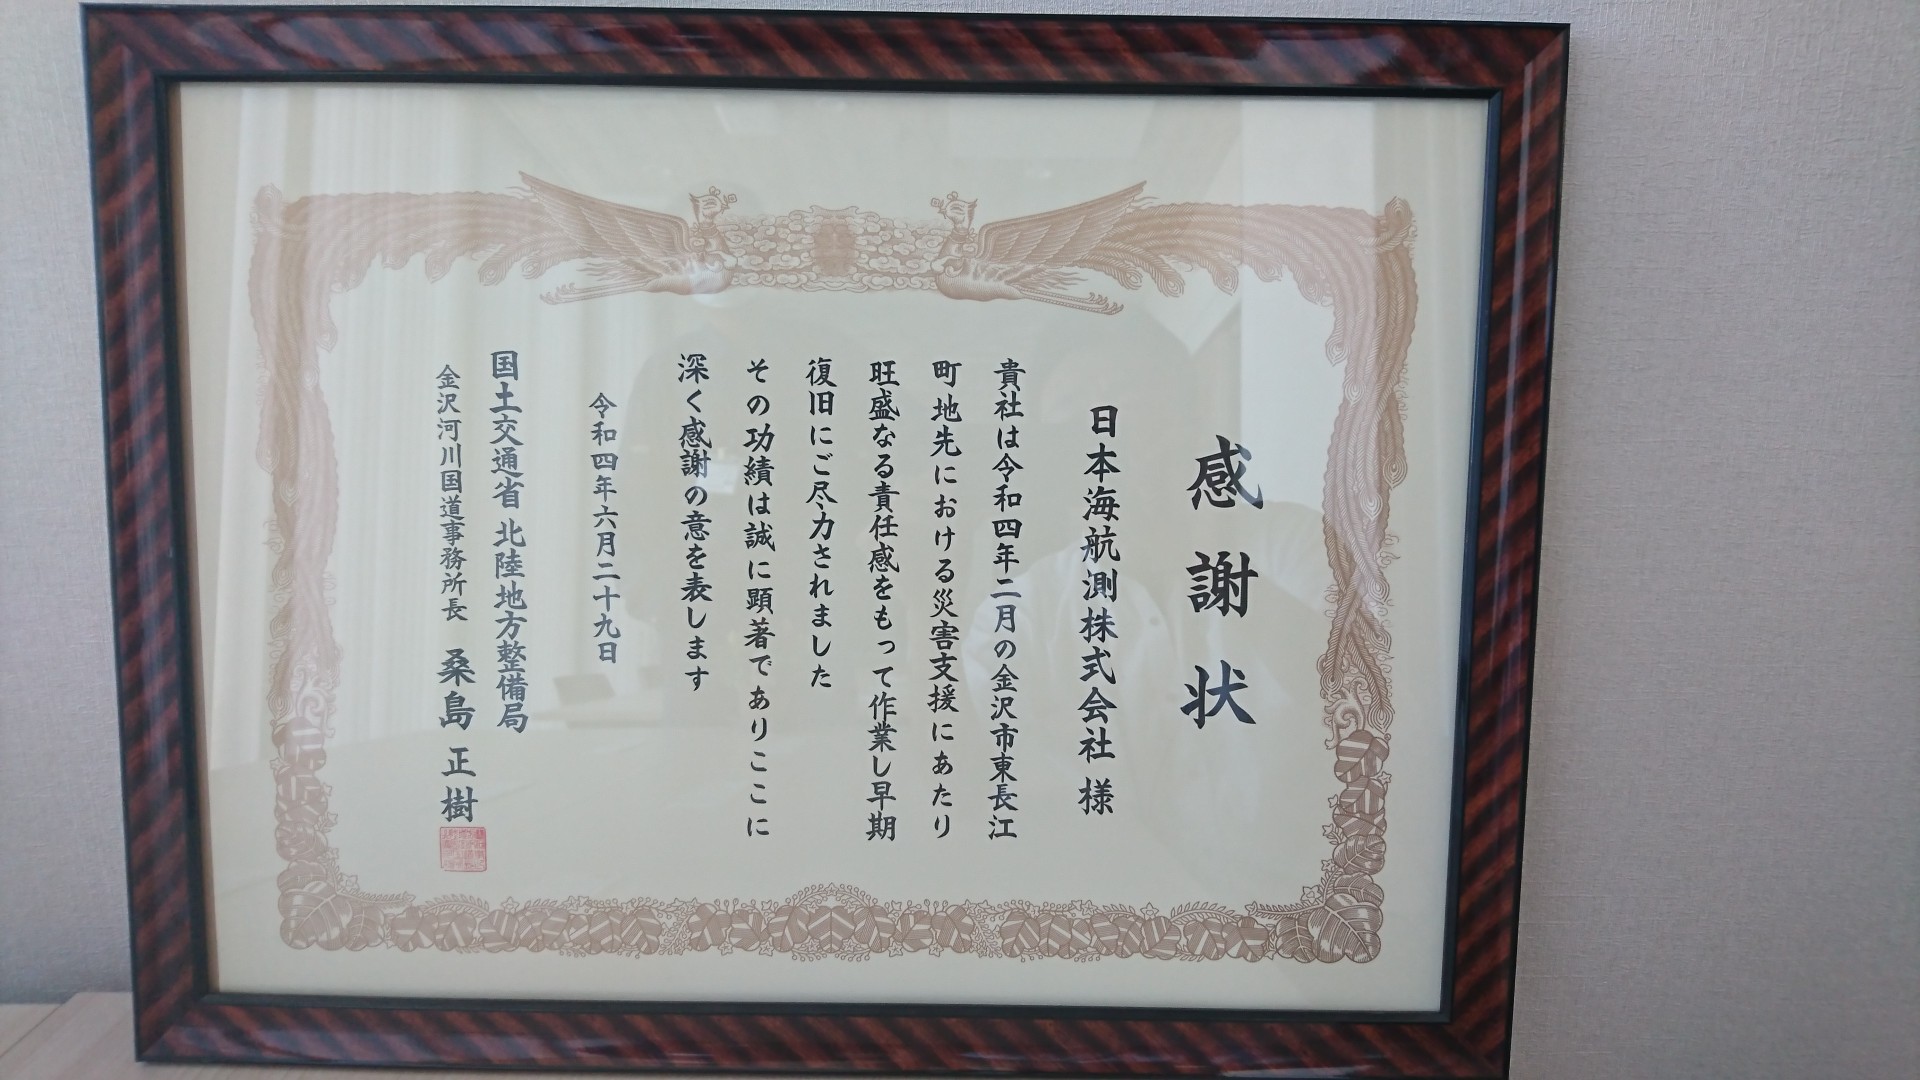 感謝状
日本海航測株式会社 様
貴社は令和四年二月の金沢市東長江
町地先における災害支援にあたり
旺盛なる責任感をもって作業し早期
復旧にご尽力されました
その功績は誠に顕著でありここに
深く感謝の意を表します
令和四年六月二十九日
国土交通省 北陸地方整備局
金沢河川国道事務所長 桑島 正樹